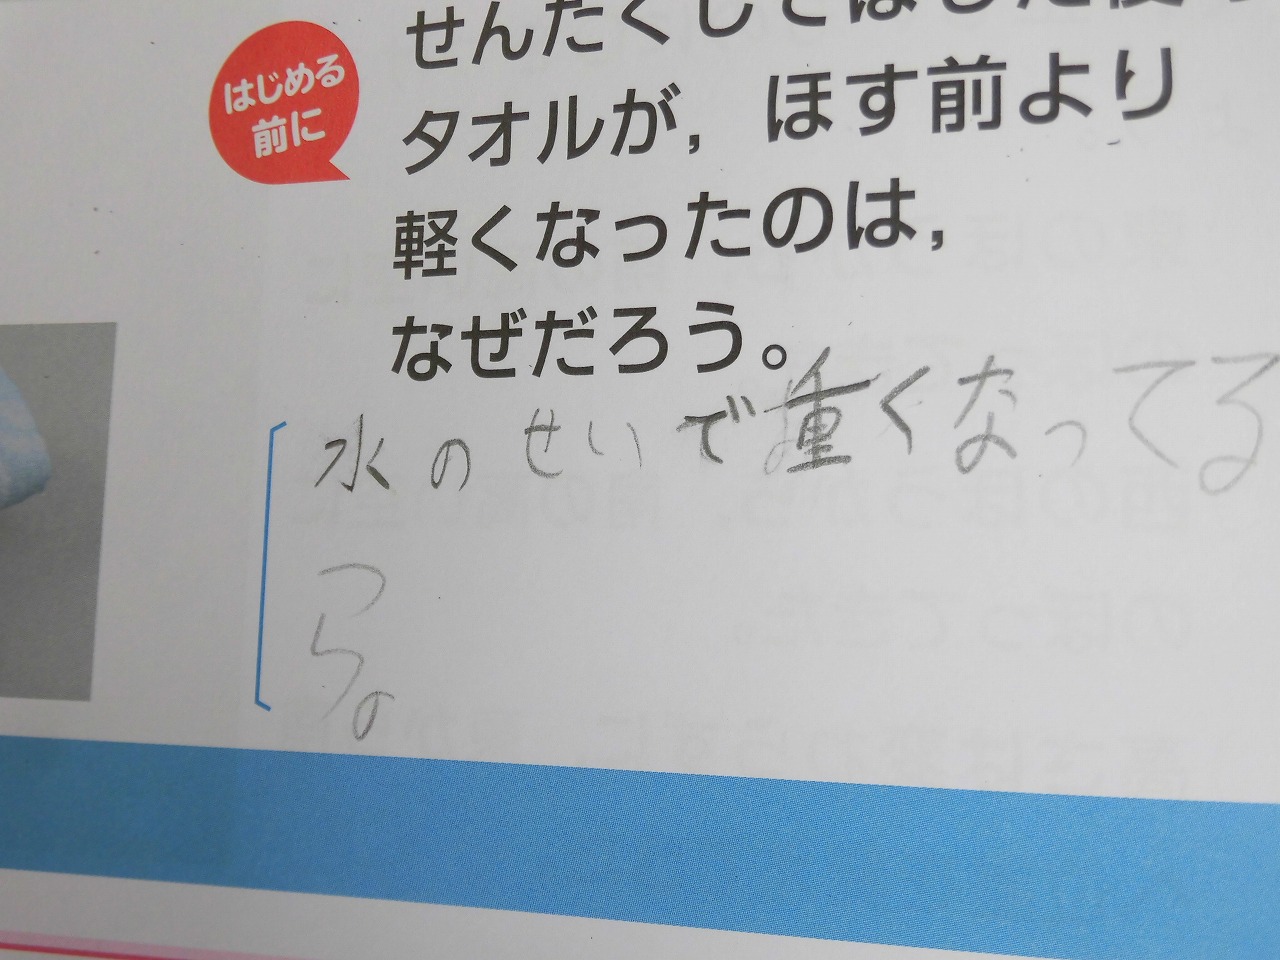 はじめる
前に
せんたくしてほした後の
タオルが，ほす前より
軽くなったのは，
なぜだろう。
水のせいで重くなってる
つ
ら。